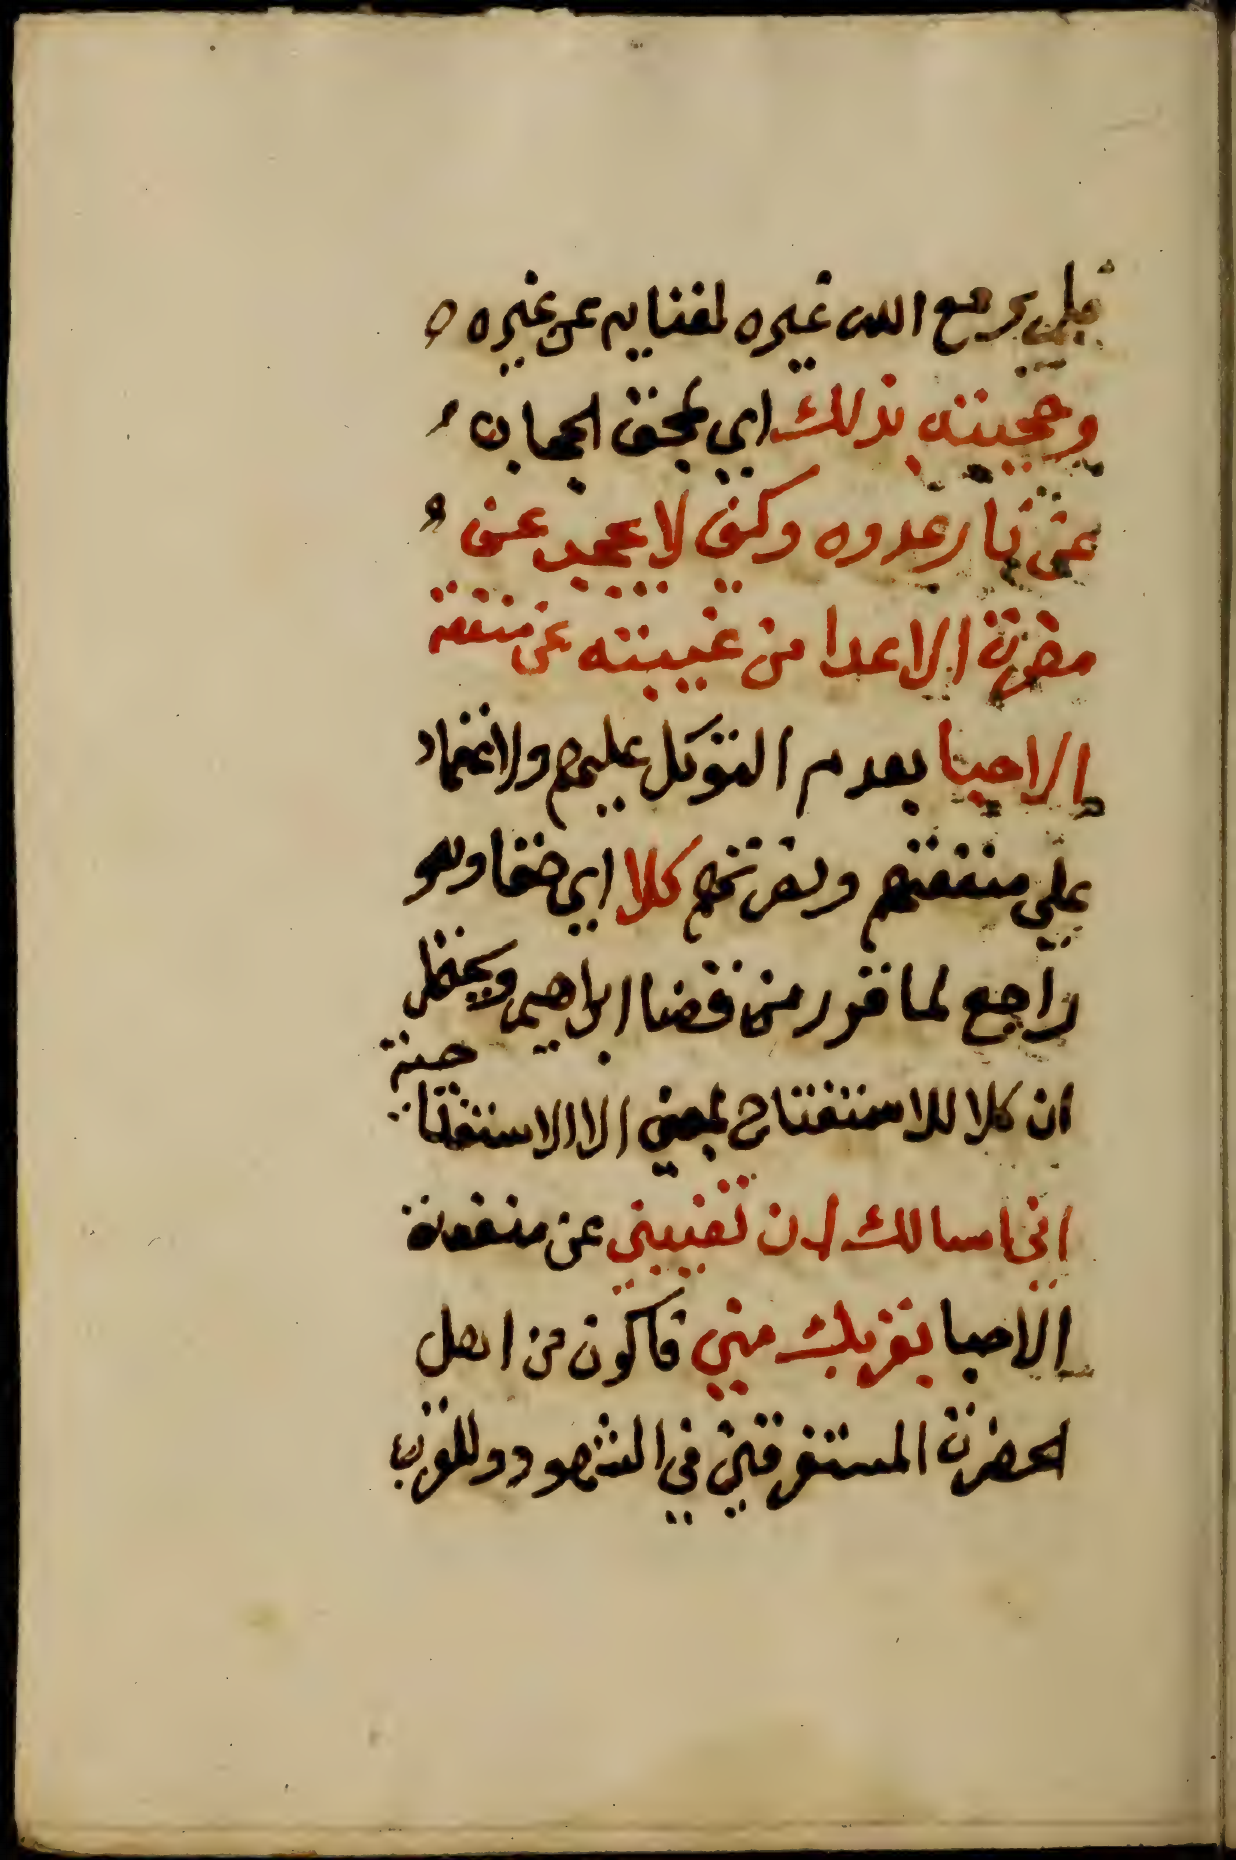 فلم يرجع الله غيره لفنايه عن غيره
وحجبته بذلك اي بمحق الحجاب
عن نار عدوه وكيف لا يحجب عن
مضرة الاعدا من غيبته عن منفعة
الاحبا بعدم التوكل عليهم والاعتماد
علي منفعتهم ونصرتهم كلا اي حقا وهو
راجع لما قرر من قضا ابراهيم ويحتمل
ان كلا للاستفتاح بمعني الا الاستفتاحية
اني اسالك ان تغيبني عن منفعة
الاحبا بقربك مني فاكون من اهل
الحضرة المستغرقين في الشهود وللقرب